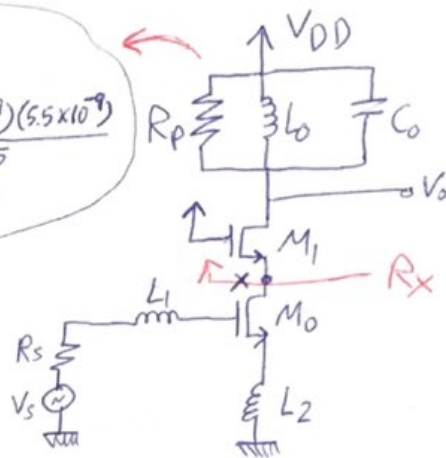 )(5.5×10⁻⁹)
VDD
Rp
Lo
Co
Vo
M1
x
Rx
L1
Mo
Rs
Vs
L2